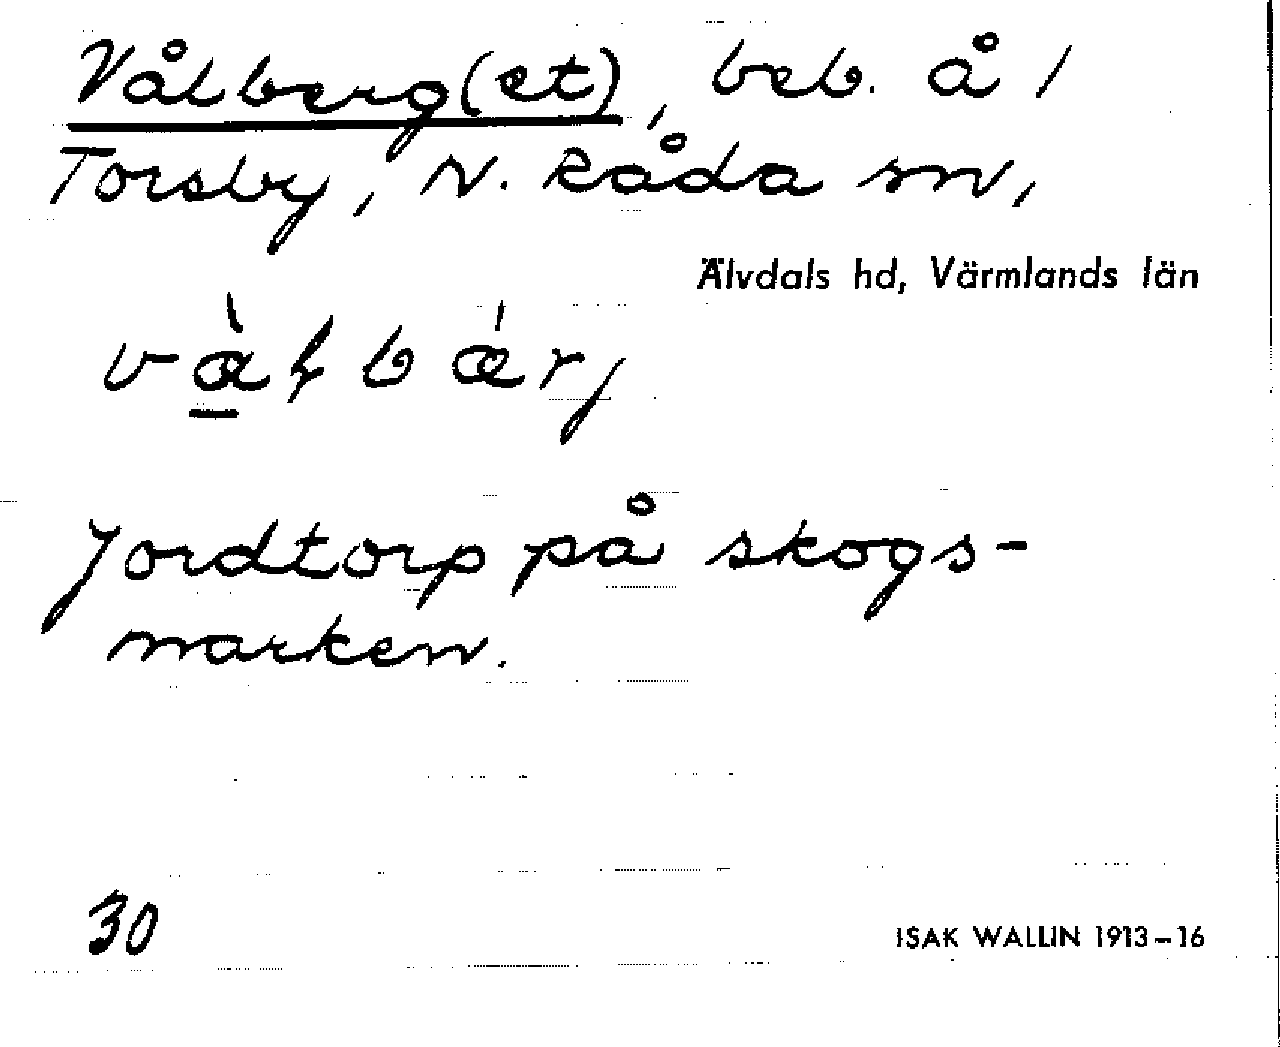 Vålberg(et), beb. å 1
Torsby, N. Råda sn,
Älvdals hd, Värmlands län
Jordtorp på skogs-
marken.
30
ISAK WALLIN 1913-16